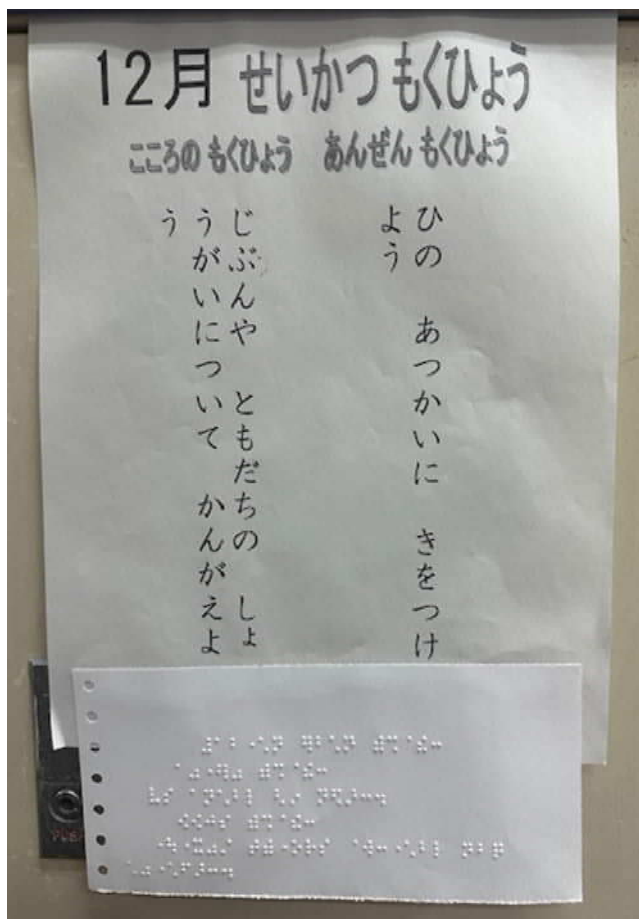 12月 せいかつ もくひょう
こころの もくひょう　あんぜん もくひょう
ひの　あつかいに　きをつけ
よう
じぶんや　ともだちの　しょ
うがいについて　かんがえよ
う